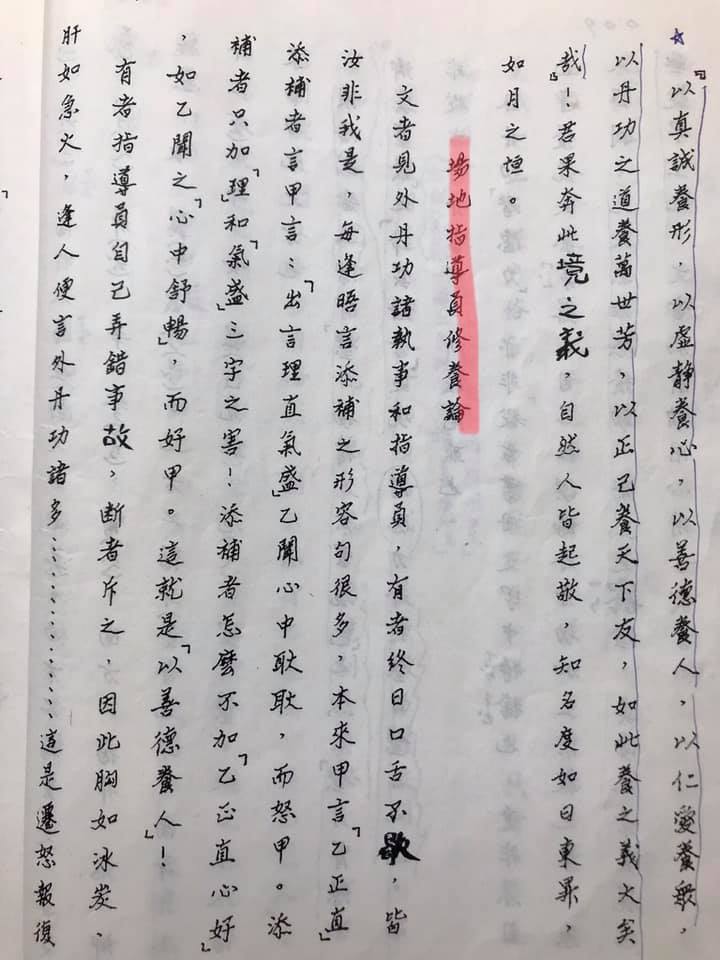 ☆
「以真誠養形，以虛静養心，以善德養人，以仁愛養衆，
以丹功之道養萬世芳，以正己養天下友，如此養之義大矣
哉」！君果奔此境之義，自然人皆起敬，知名度如日東昇，
如月之恒。
場地指導員修養論
文者見外丹功諸執事和指導員，有者終日口舌不歇，皆
汝非我是，每逢晤言添補之形容句很多，本來甲言「乙正直」
添補者言甲言：「出言理直氣盛」乙聞心中耿耿，而怒甲。添
補者只加「理」和「氣盛」三字之害！添補者怎麼不加「乙正直心好」
，如乙聞之「心中舒暢」，而好甲。這就是「以善德養人」！
有者指導員自己弄錯事故，断者斥之，因此胸如冰炭，
肝如急火，逢人便言外丹功諸多……………這是遷怒報復